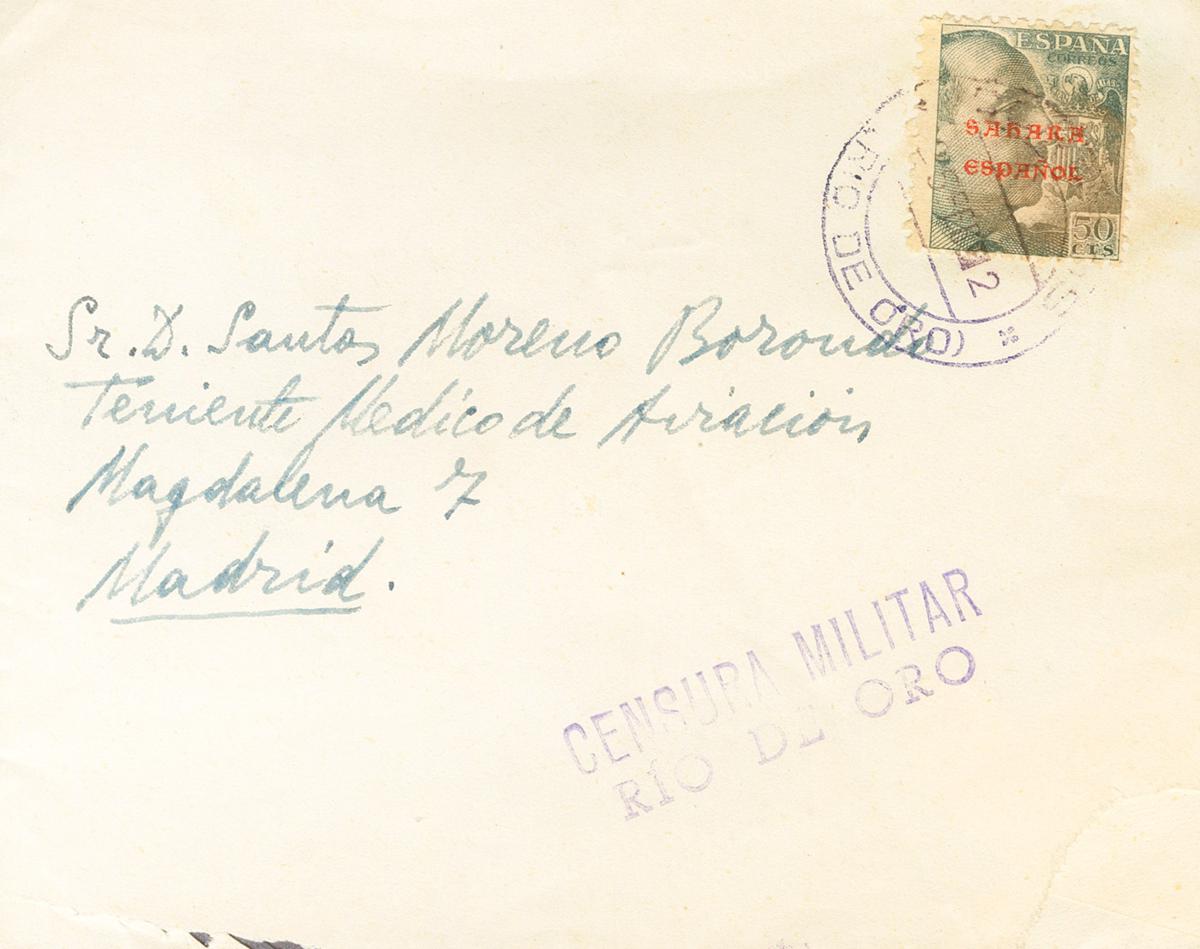 ESPAÑA
CORREOS
SAHARA
ESPAÑOL
50
CTS
RIO DE ORO)
Sr. D. Santos Moreno Boronda
Teniente Medico de Aviación
Magdalena 7
Madrid.
CENSURA MILITAR
RÍO DE ORO